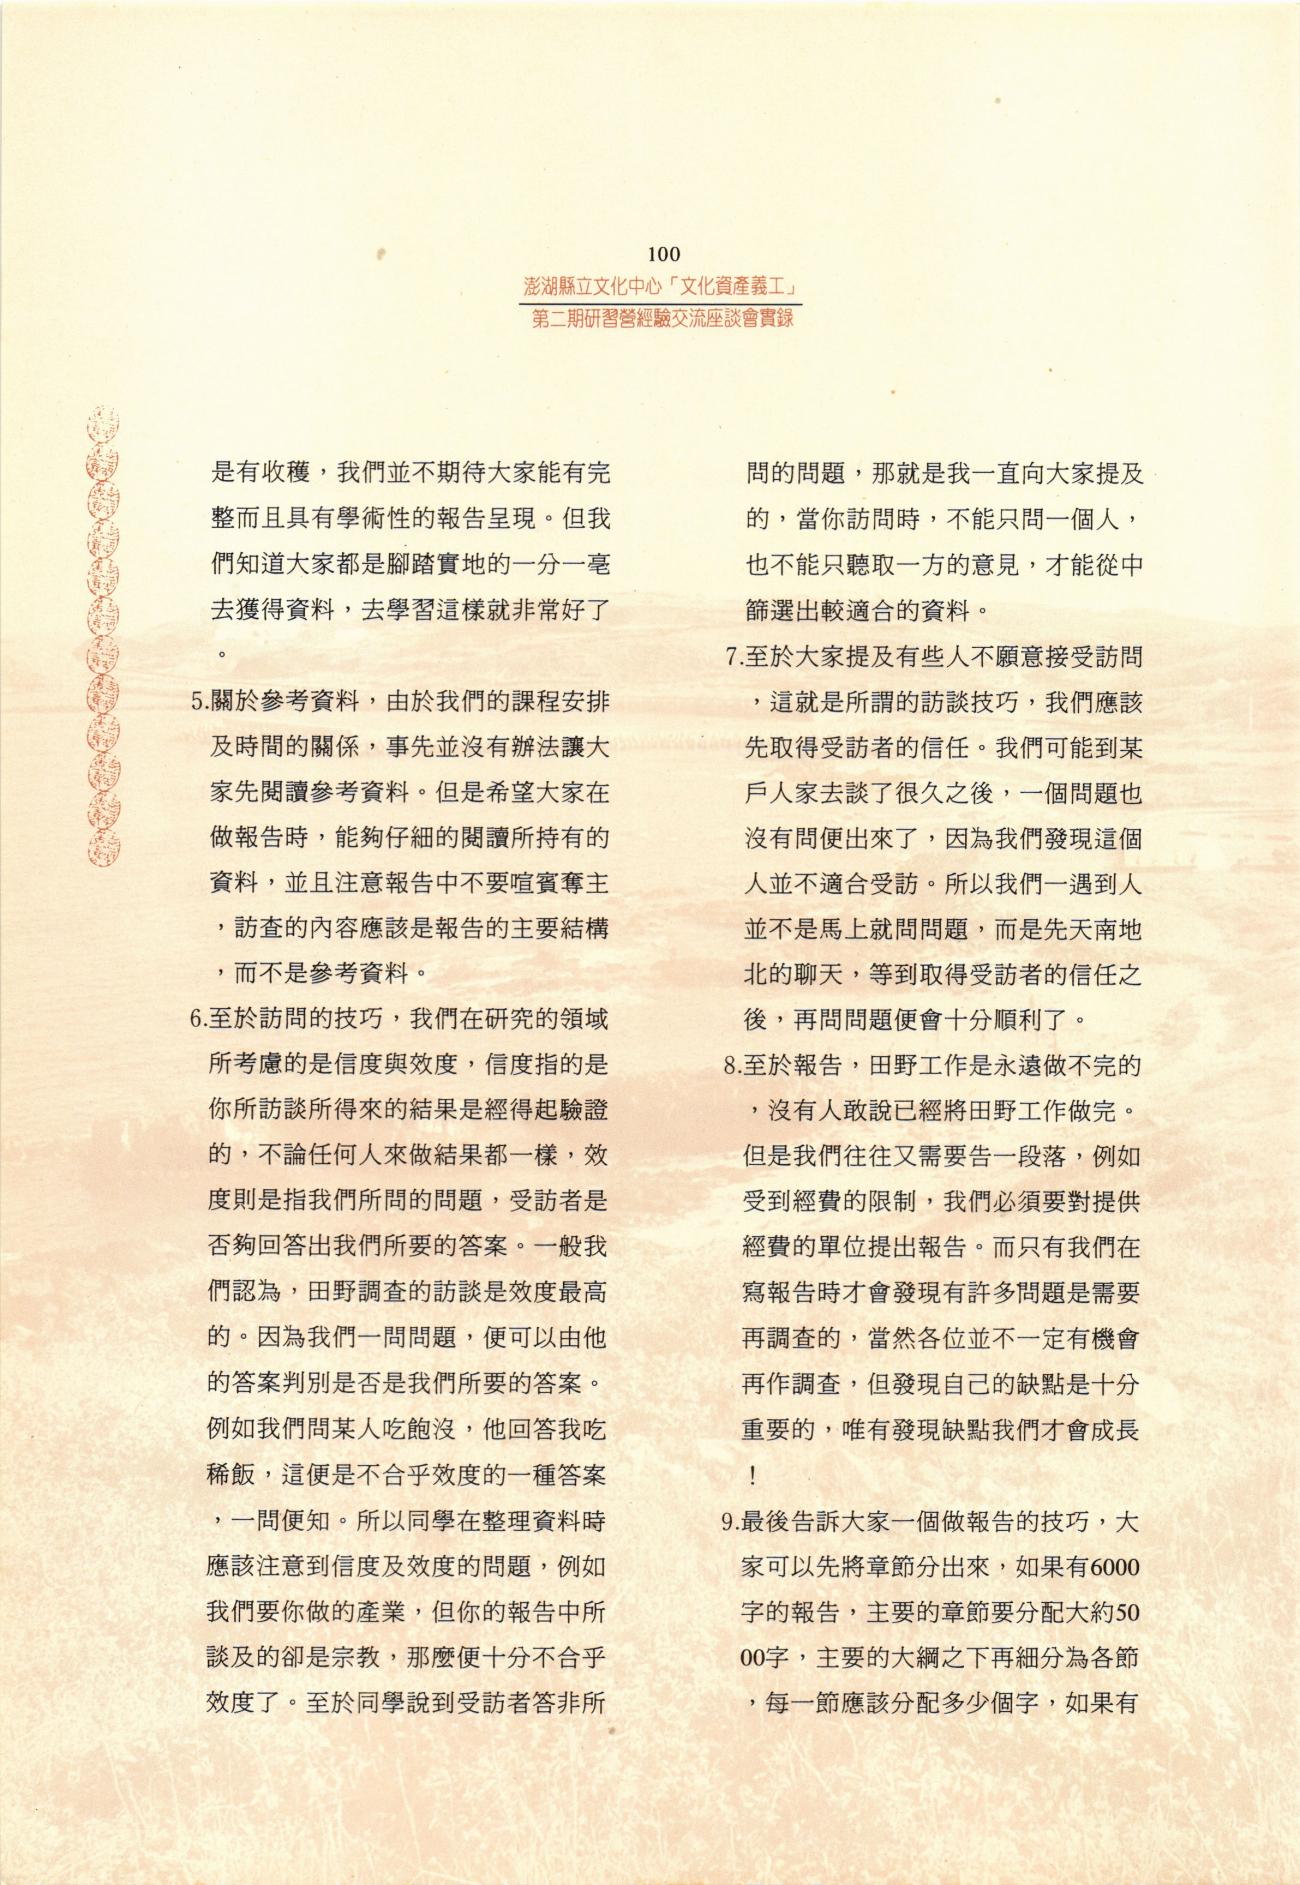 100
澎湖縣立文化中心「文化資產義工」
第二期研習營經驗交流座談會實錄
是有收穫，我們並不期待大家能有完
整而且具有學術性的報告呈現。但我
們知道大家都是腳踏實地的一分一毫
去獲得資料，去學習這樣就非常好了
。
5.關於參考資料，由於我們的課程安排
及時間的關係，事先並沒有辦法讓大
家先閱讀參考資料。但是希望大家在
做報告時，能夠仔細的閱讀所持有的
資料，並且注意報告中不要喧賓奪主
，訪查的內容應該是報告的主要結構
，而不是參考資料。
6.至於訪問的技巧，我們在研究的領域
所考慮的是信度與效度，信度指的是
你所訪談所得來的結果是經得起驗證
的，不論任何人來做結果都一樣，效
度則是指我們所問的問題，受訪者是
否夠回答出我們所要的答案。一般我
們認為，田野調查的訪談是效度最高
的。因為我們一問問題，便可以由他
的答案判別是否是我們所要的答案。
例如我們問某人吃飽沒，他回答我吃
稀飯，這便是不合乎效度的一種答案
，一問便知。所以同學在整理資料時
應該注意到信度及效度的問題，例如
我們要你做的產業，但你的報告中所
談及的卻是宗教，那麼便十分不合乎
效度了。至於同學說到受訪者答非所
問的問題，那就是我一直向大家提及
的，當你訪問時，不能只問一個人，
也不能只聽取一方的意見，才能從中
篩選出較適合的資料。
7.至於大家提及有些人不願意接受訪問
，這就是所謂的訪談技巧，我們應該
先取得受訪者的信任。我們可能到某
戶人家去談了很久之後，一個問題也
沒有問便出來了，因為我們發現這個
人並不適合受訪。所以我們一遇到人
並不是馬上就問問題，而是先天南地
北的聊天，等到取得受訪者的信任之
後，再問問題便會十分順利了。
8.至於報告，田野工作是永遠做不完的
，沒有人敢說已經將田野工作做完。
但是我們往往又需要告一段落，例如
受到經費的限制，我們必須要對提供
經費的單位提出報告。而只有我們在
寫報告時才會發現有許多問題是需要
再調查的，當然各位並不一定有機會
再作調查，但發現自己的缺點是十分
重要的，唯有發現缺點我們才會成長
！
9.最後告訴大家一個做報告的技巧，大
家可以先將章節分出來，如果有6000
字的報告，主要的章節要分配大約50
00字，主要的大綱之下再細分為各節
，每一節應該分配多少個字，如果有